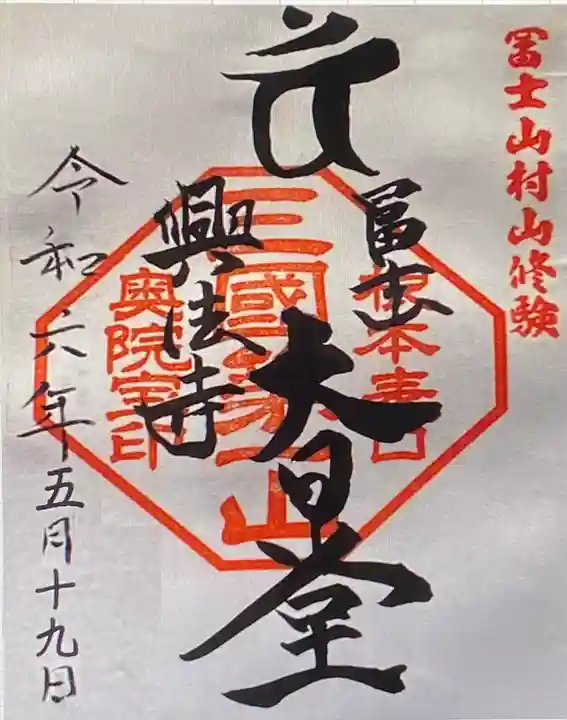 冨士山村山修験
冨士
大日堂
興法寺
根本表口
三國第一山
奥院宝印
令和六年五月十九日